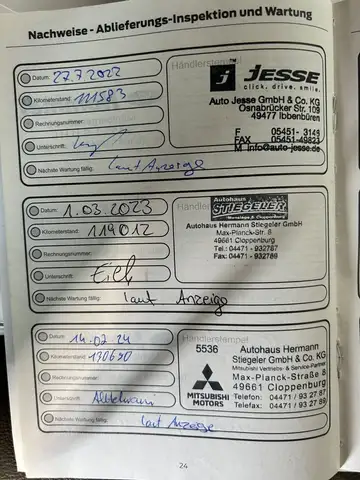 Nachweise - Ablieferungs-Inspektion und Wartung
Datum: 27.7.2022
Kilometerstand: 111583
Rechnungsnummer:
Unterschrift:
Nächste Wartung fällig: laut Anzeige
Händlerstempel
JESSE
click. drive. smile.
Auto Jesse GmbH & Co. KG
Osnabrücker Str. 109
49477 Ibbenbüren
F 05451- 3149
FAX 05451-49823
M info@auto-jesse.de
Datum: 1.03.2023
Kilometerstand: 119012
Rechnungsnummer:
Unterschrift:
Nächste Wartung fällig: laut Anzeige
Autohaus
STIEGELER
Autohaus Hermann Stiegeler GmbH
Max-Planck-Str. 8
49661 Cloppenburg
Tel.: 04471 - 932787
Fax: 04471 - 932789
Datum: 14.02.24
Kilometerstand: 130690
Rechnungsnummer:
Unterschrift:
Nächste Wartung fällig: laut Anzeige
Händlerstempel
5536
MITSUBISHI
MOTORS
Autohaus Hermann
Stiegeler GmbH & Co. KG
Mitsubishi Vertriebs- & Service-Partner
Max-Planck-Straße 8
49661 Cloppenburg
Telefon: 04471 / 93 27 87
Telefax: 04471 / 93 27 89
24